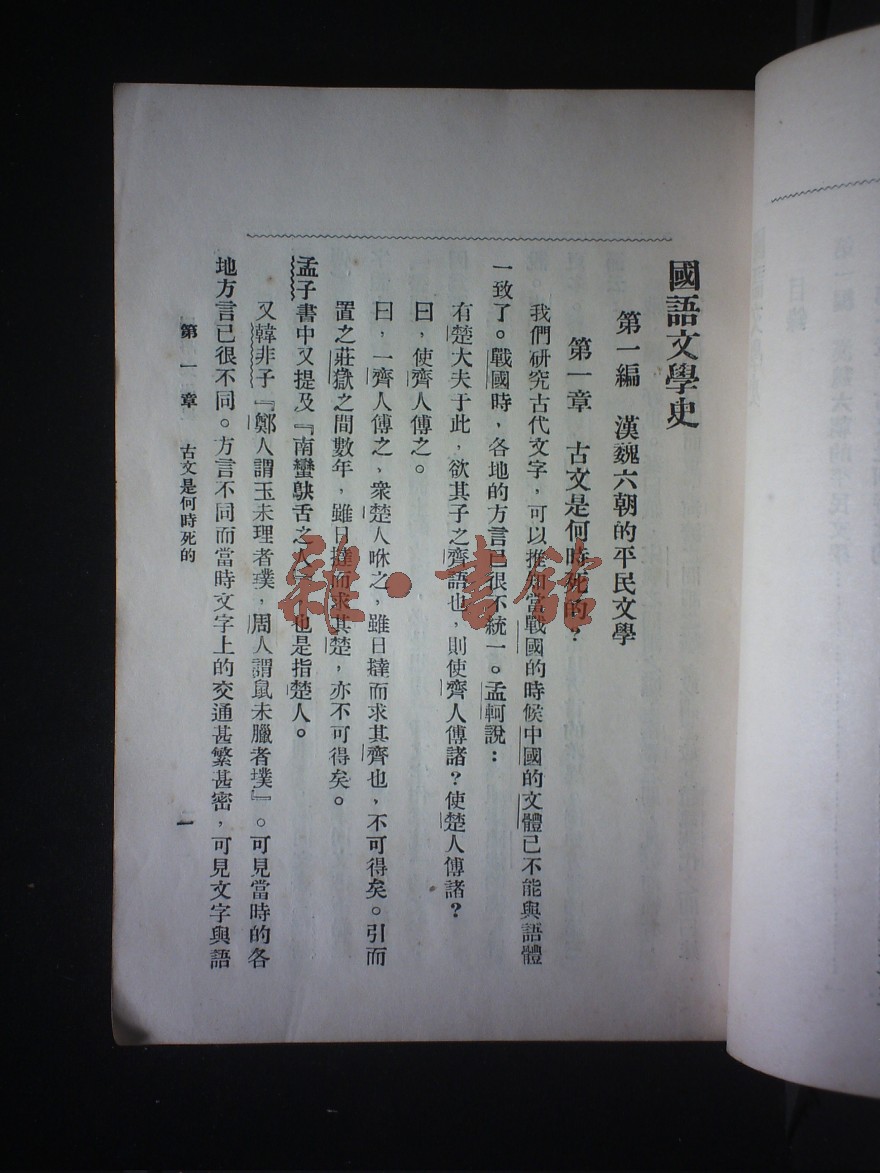 國語文學史
第一編　漢魏六朝的平民文學
第一章　古文是何時死的？
我們研究古代文字，可以推知當戰國的時候中國的文體已不能與語體
一致了。戰國時，各地的方言已很不統一。孟軻說：
有楚大夫于此，欲其子之齊語也，則使齊人傅諸？使楚人傅諸？
曰，使齊人傅之。
曰，一齊人傅之，衆楚人咻之，雖日撻而求其齊也，不可得矣。引而
置之莊嶽之間數年，雖日撻而求其楚，亦不可得矣。
孟子書中又提及『南蠻鴃舌之人』，也是指楚人。
又韓非子『鄭人謂玉未理者璞，周人謂鼠未臘者璞』。可見當時的各
地方言已很不同。方言不同而當時文字上的交通甚繁甚密，可見文字與語
第一章　古文是何時死的
一
雜·書館